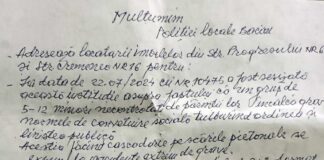 Multumim
Politiei Locale Bacau
- Adresează locatarii imobilelor din str. Progresului NR.6
și str. Cremenea NR.16 pentru:
- La data de 22.07/2024 cu NR.10475 a fost sesizată
această instituție asupra faptului că un grup de
5-12 minori necontrolați de părinți
normele de conviețuire socială tulburând ordinea și
liniștea publică
Aceștia făcând cascadorie pe scările pietonale se
expun la accidente extrem de grave.